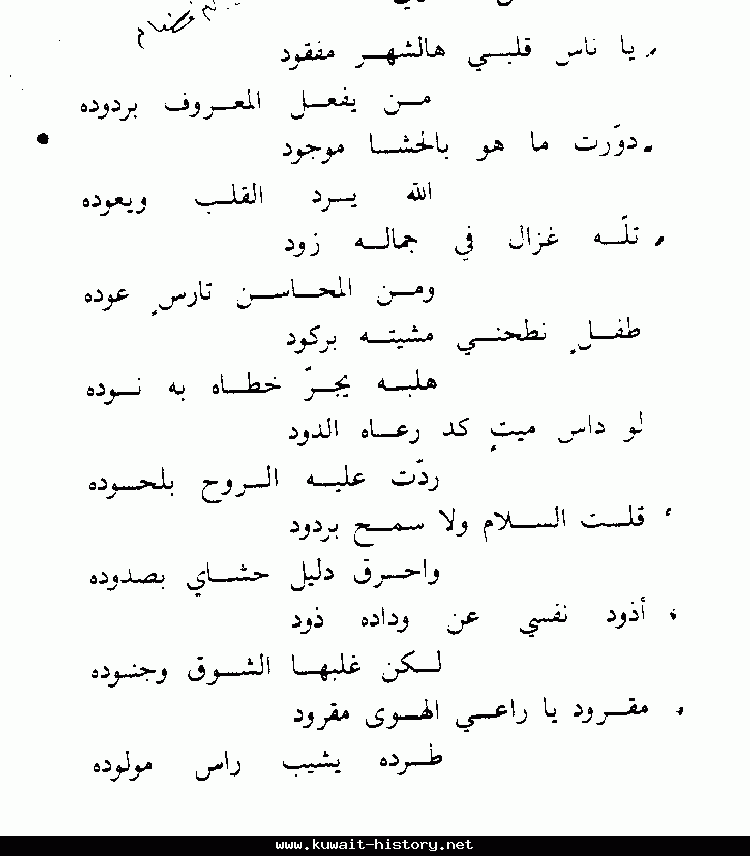 يا ناس قلبي هالشهر مفقود
من يفعل المعروف بردوده
دوّرت ما هو بالحشا موجود
الله يرد القلب ويعوده
تلّه غزال في جماله زود
ومن المحاسن تارسٍ عوده
طفلٍ نطحني مشيته بركود
هلبه يجرّ خطاه به نوده
لو داس ميتٍ كد رعاه الدود
ردّت عليه الروح بلحوده
قلت السلام ولا سمح بردود
واحرق دليل حشاي بصدوده
أذود نفسي عن وداده ذود
لكن غلبها الشوق وجنوده
مقرود يا راعي الهوى مقرود
طرده يشيب راس مولوده
www.kuwait-history.net